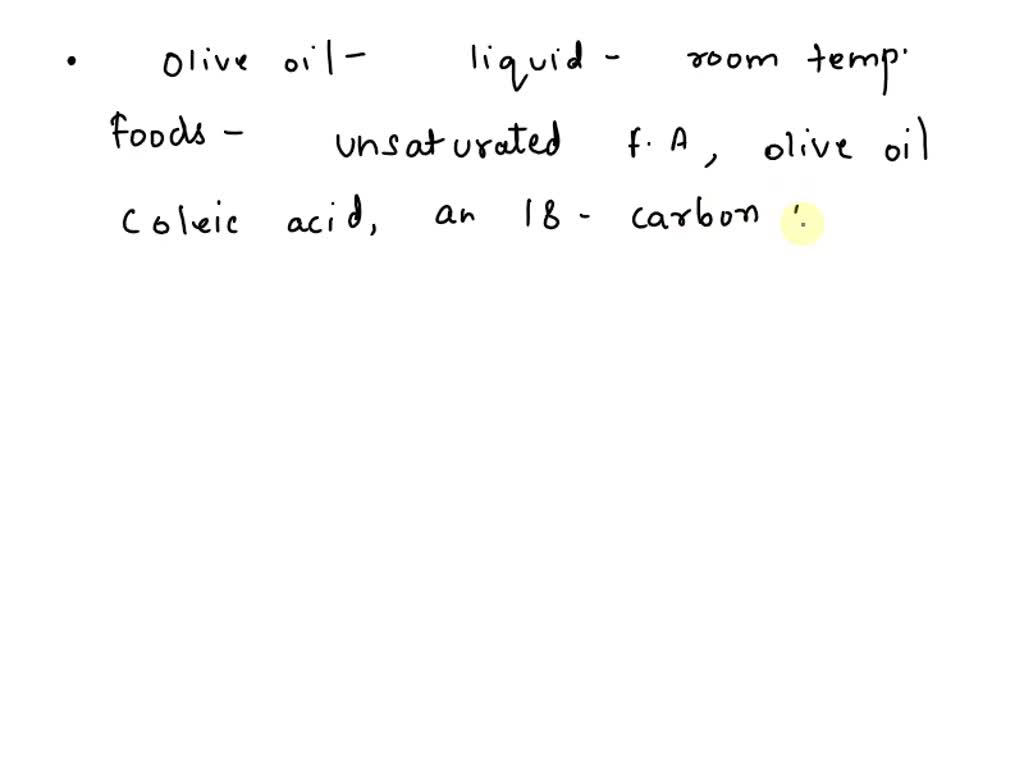 • Olive oil - liquid - room temp.
foods - unsaturated f. A, olive oil
( oleic acid, an 18 - carbon